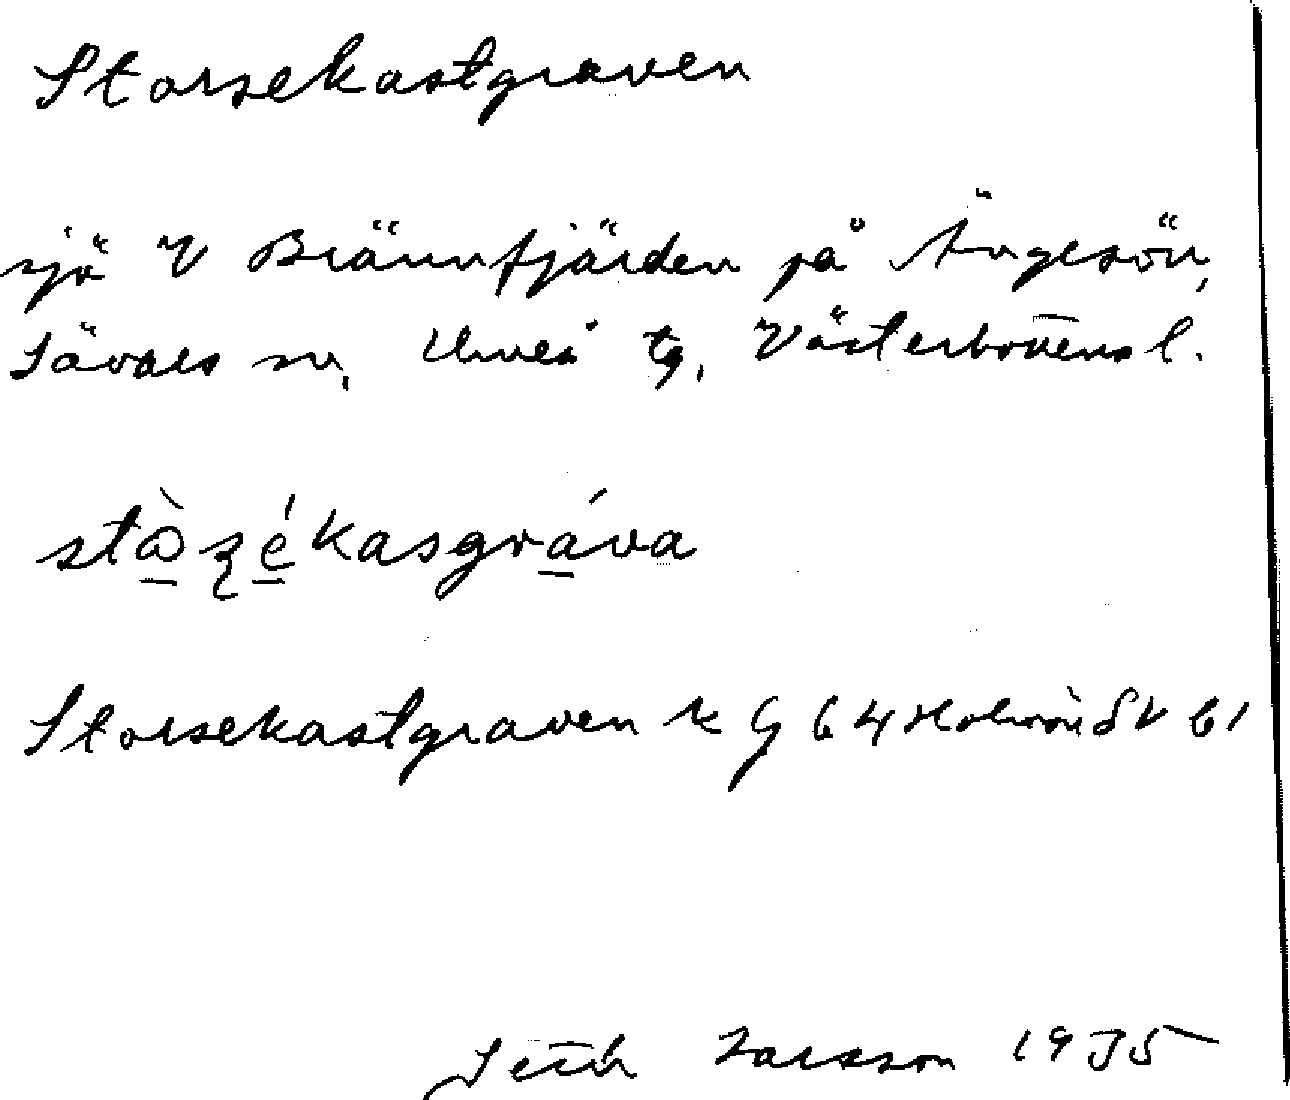 Storsekastgraven
sjö V Brännfjärden på Ängesön,
Sävars sn, Umeå tg, Västerbottens l.
stàzékasgráva
Storsekastgraven k G 64 Holmön SV 61
Larsson 1975